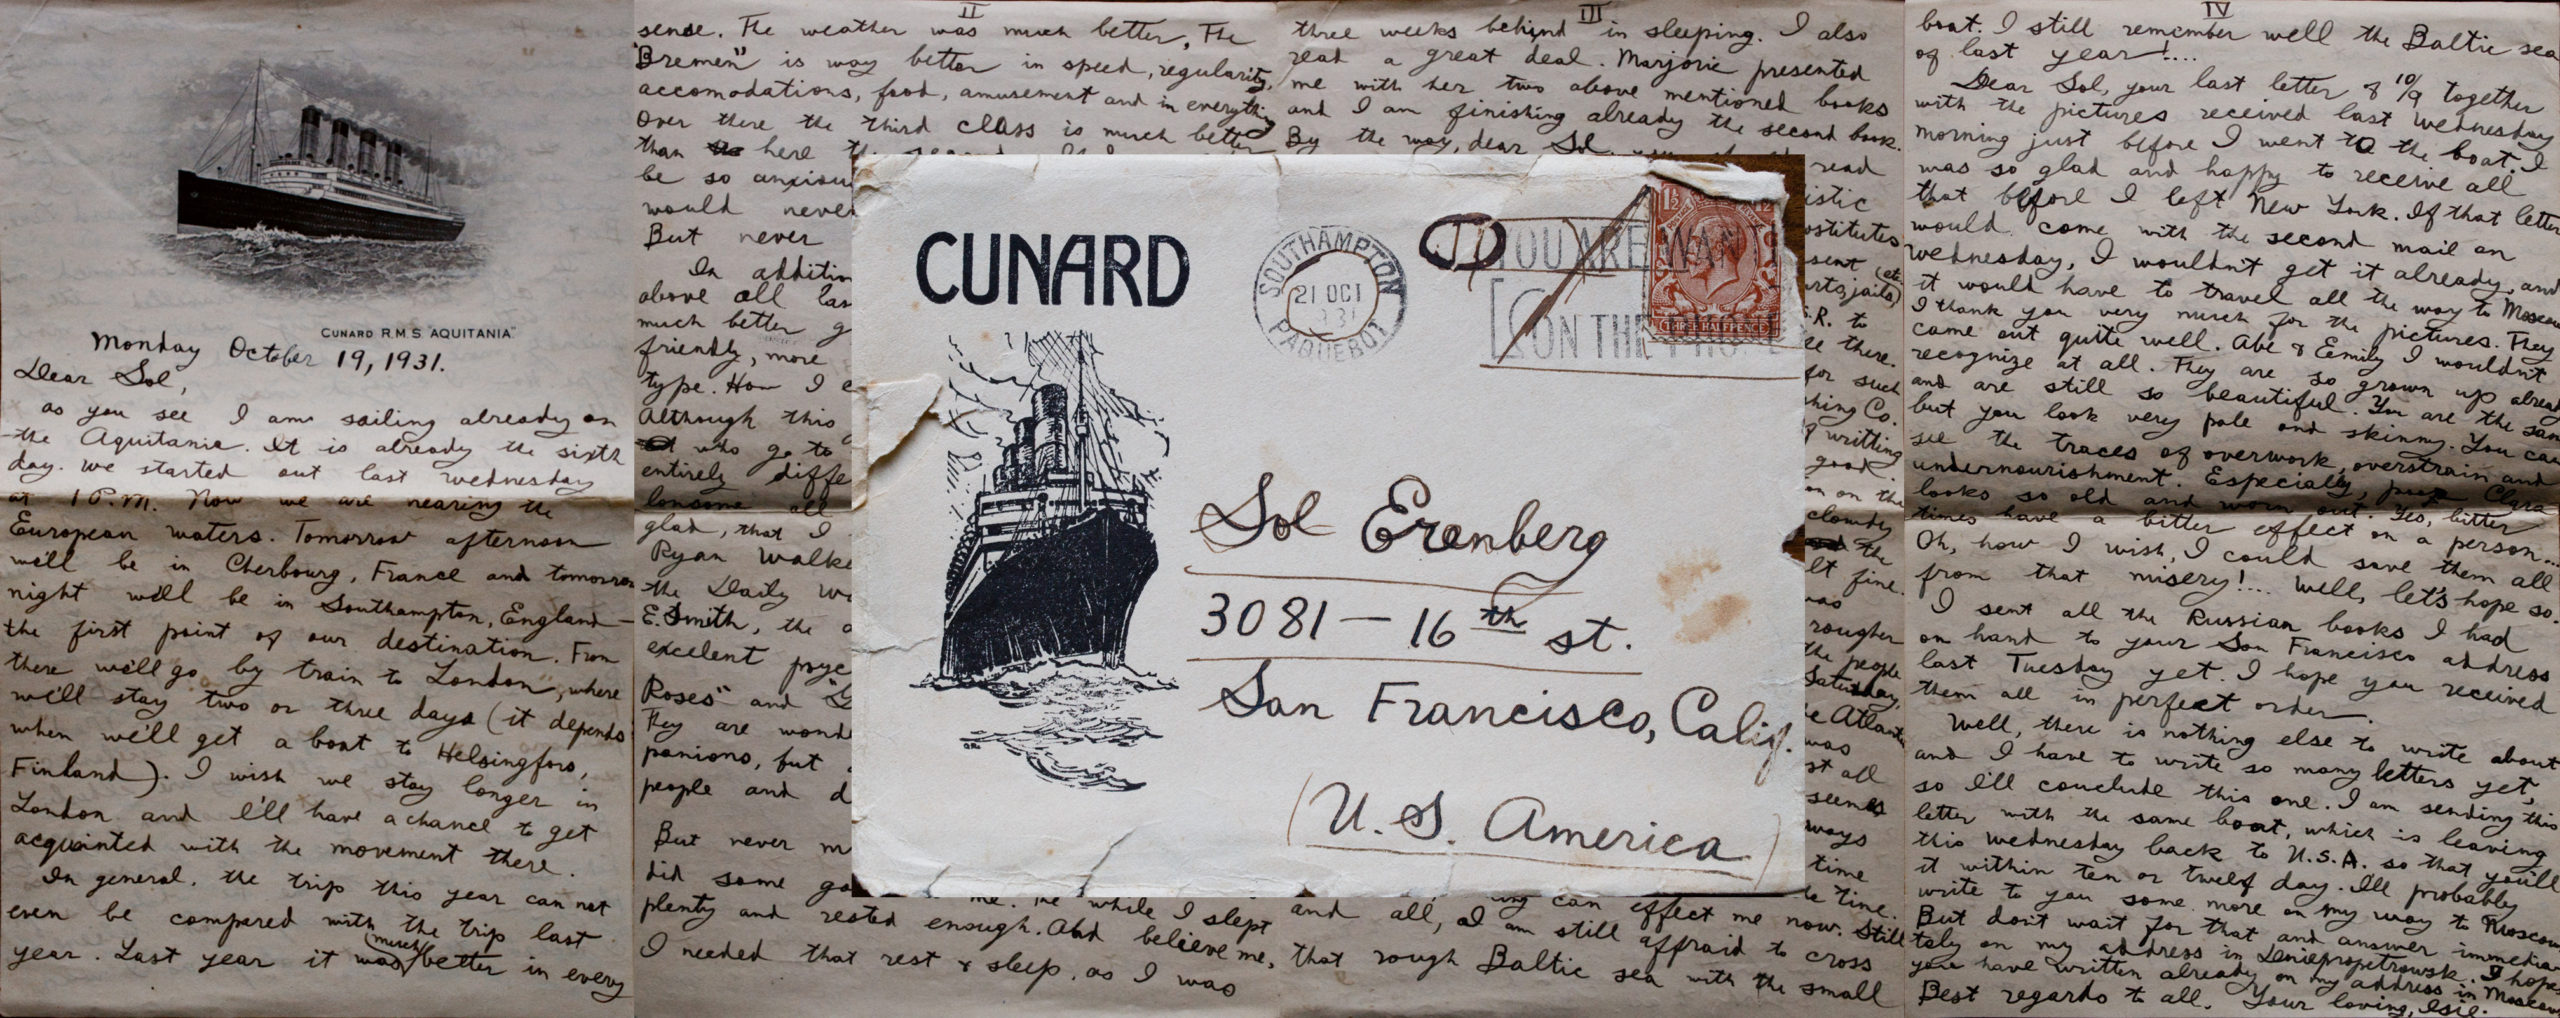 CUNARD R.M.S. "AQUITANIA."
Monday October 19, 1931.
Dear Sol,
as you see I am sailing already on
the Aquitania. It is already the sixth
day. We started out last wednesday
at 1 P.M. Now we are nearing the
European waters. Tomorrow afternoon
we'll be in Cherbourg, France and tomorrow
night we'll be in Southampton, England –
the first point of our destination. From
there we'll go by train to London, where
we'll stay two or three days (it depends
when we'll get a boat to Helsingfors,
Finland). I wish we stay longer in
London and I'll have a chance to get
acquainted with the movement there.
In general, the trip this year can not
even be compared with the trip last
year. Last year it was (much) better in every
II
sense. The weather was much better, The
"Bremen" is way better in speed, regularity,
accomodations, food, amusement and in everything
Over there the third class is much better
than here
be so anxious
would never
But never
In addition
above all las
much better g
friendly, more
type. How I e
Although this
who go to
entirely diffe
lonsome all
glad, that I
Ryan Walke
the Daily Wo
E. Smith, the a
excelent psyc
Roses" and "G
They are wond
panions, but
people and d
But never m
did some go
me. The while I slept
plenty and rested enough. And believe me,
I needed that rest & sleep, as I was
III
three weeks behind in sleeping. I also
read a great deal. Marjorie presented
me with her two above mentioned books
and I am finishing already the second book.
By the way, dear Sol, read
istic
ostitutes
sent (etc.
urts, jails)
S.R. to
ee there.
for such
shing Co.
of writting
good.
on on the
clowdy
the
lt fine.
was
rougher
the people
Saturday,
e Atlantic
was
st all
seems
ways
time
le time.
ing can effect me now. Still
and all, I am still affraid to cross
that rough Baltic sea with the small
IV
boat. I still remember well the Baltic sea
of last year!....
Dear Sol, your last letter of 10/9 together
with the pictures received last Wednesday
morning just before I went to the boat. I
was so glad and happy to receive all
that before I left New York. If that letter
would come with the second mail on
Wednesday, I wouldn't get it already, and
it would have to travel all the way to Moscow
I thank you very much for the pictures. They
came out quite well. Abe & Eemily I wouldn't
recognize at all. They are so grown up already
and are still so beautiful. You are the same
but you look very pale and skinny. You can
see the traces of overwork, overstrain and
undernourishment. Especially, poor Clara
looks so old and worn out. Yes, bitter
times have a bitter effect on a person...
Oh, how I wish, I could save them all
from that misery!.... Well, let's hope so.
I sent all the Russian books I had
on hand to your San Francisco address
last Tuesday yet. I hope you received
them all in perfect order.
Well, there is nothing else to write about
and I have to write so many letters yet,
so I'll conclude this one. I am sending this
letter with the same boat, which is leaving
this wednesday back to U.S.A. so that you'll
it within ten or twelf day. I'll probably
write to you some more on my way to Moscow
But don't wait for that and answer immedia-
tely on my address in Dniepropetrowsk. I hope
you have written already on my address in Moscow
Best regards to all. Your loving, Isie.
CUNARD
SOUTHAMPTON
21 OCT
PAQUEBOT
YOU ARE WAN
ON THE PHONE
1½
THREE HALFPENCE
Sol Erenberg
3081 – 16th st.
San Francisco, Calif.
(U.S. America)